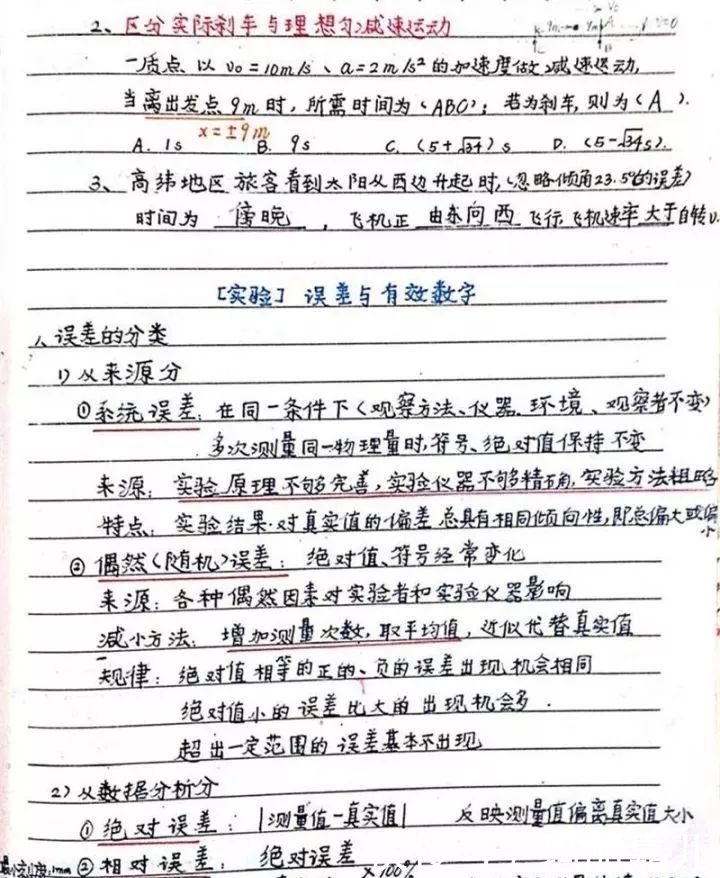 2、区分实际刹车与理想匀减速运动
一质点以v₀=10m/s、a=2m/s²的加速度做减速运动,
当离出发点9m时,所需时间为(ABC);若为刹车,则为(A).
x=±9m
A. 1s B. 9s C. (5+√34)s D. (5-√34s).
3、高纬地区旅客看到太阳从西边升起时,(忽略倾角23.5°的误差)
时间为 傍晚 ,飞机正 由东向西 飞行,飞机速率大于自转v.
[实验] 误差与有效数字
一、误差的分类
1)从来源分
①系统误差:在同一条件下(观察方法、仪器、环境、观察者不变)
多次测量同一物理量时,符号、绝对值保持不变
来源:实验原理不够完善,实验仪器不够精确,实验方法粗略
特点:实验结果对真实值的偏差总具有相同倾向性,即总偏大或偏小
②偶然(随机)误差:绝对值、符号经常变化
来源:各种偶然因素对实验者和实验仪器影响
减小方法:增加测量次数,取平均值,近似代替真实值
规律:绝对值相等的正的、负的误差出现机会相同
绝对值小的误差比大的出现机会多.
超出一定范围的误差基本不出现
2)从数据分析分
①绝对误差:|测量值-真实值| 反映测量值偏离真实值大小
②相对误差:绝对误差
×100%